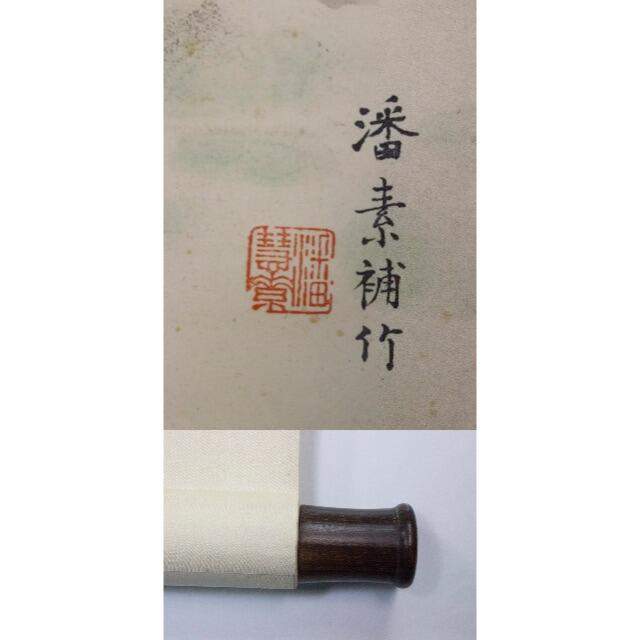 潘素補竹
潘慧素